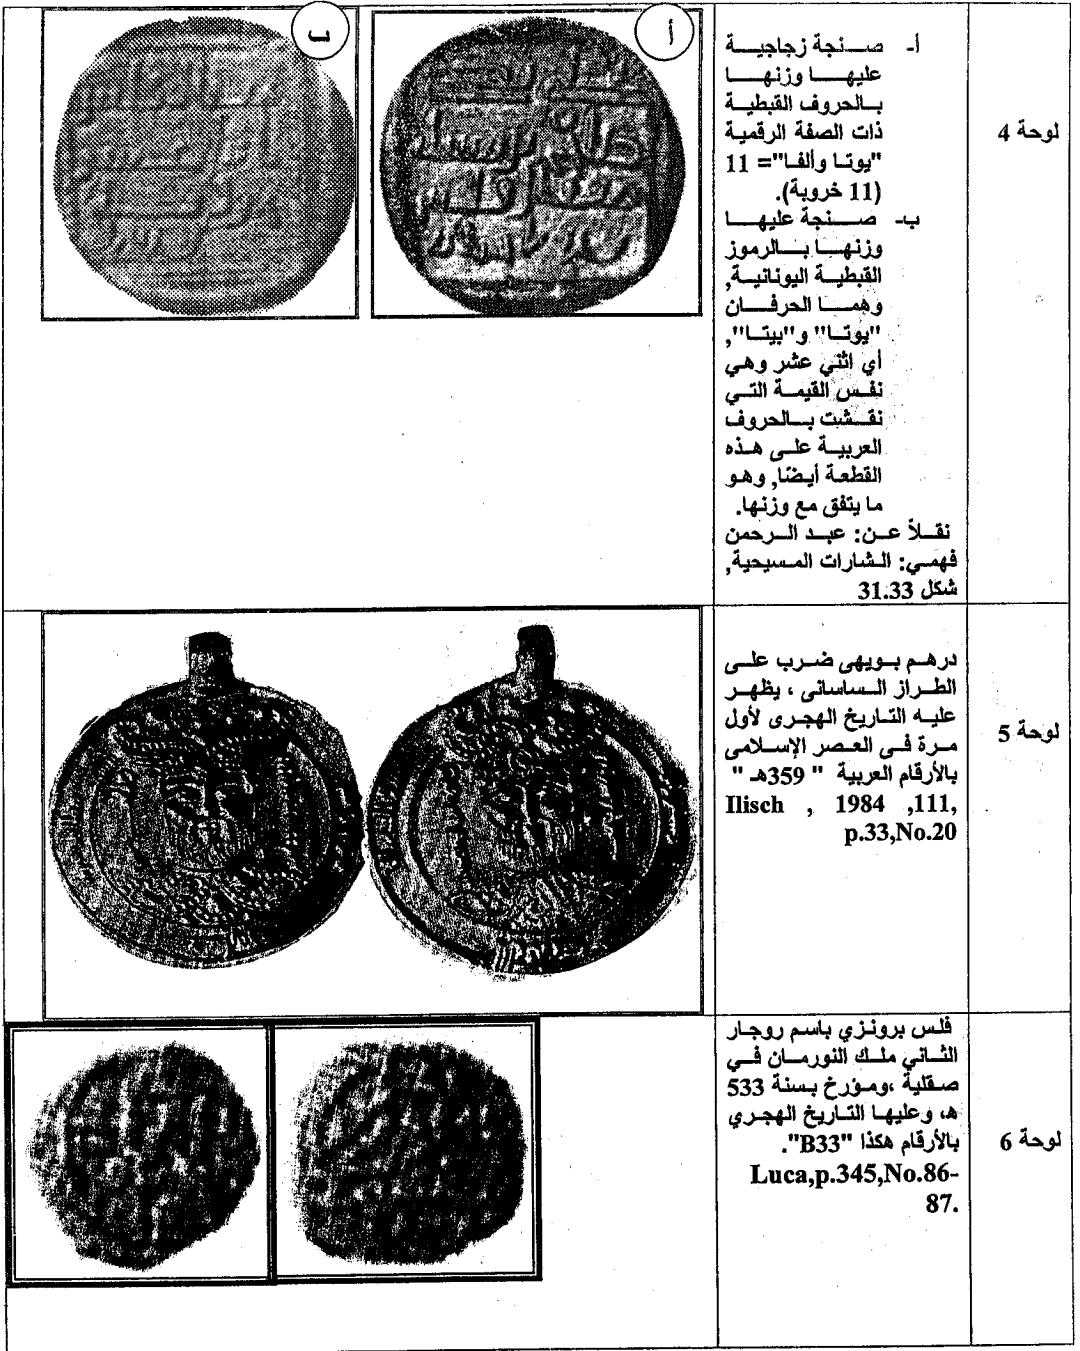 لوحة 4
أ- صنجة زجاجية
عليها وزنها
بالحروف القبطية
ذات الصفة الرقمية
"يوتا وألفا"= 11
(11 خروبة).
ب- صنجة عليها
وزنها بالرموز
القبطية اليونانية,
وهما الحرفان
"يوتا" و"بيتا",
أي اثني عشر وهي
نفس القيمة التي
نقشت بالحروف
العربية على هذه
القطعة أيضًا, وهو
ما يتفق مع وزنها.
نقلاً عن: عبد الرحمن
فهمي: الشارات المسيحية,
شكل 31.33
أ
ب
لوحة 5
درهم بويهى ضرب على
الطراز الساسانى ، يظهر
عليه التاريخ الهجرى لأول
مرة فى العصر الإسلامى
بالأرقام العربية " 359هـ "
Ilisch , 1984 ,111,
p.33,No.20
لوحة 6
فلس برونزي باسم روجار
الثاني ملك النورمان في
صقلية ،ومؤرخ بسنة 533
ه، وعليها التاريخ الهجري
بالأرقام هكذا "B33".
Luca,p.345,No.86-
87.